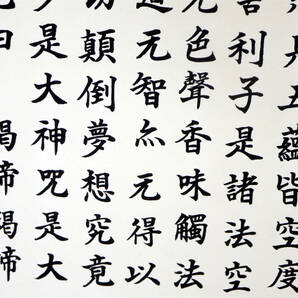 五蘊皆空度
舍利子是諸法空
无色聲香味觸法
道无智亦无得以
切顛倒夢想究竟
多是大神呪是大
曰揭諦揭諦